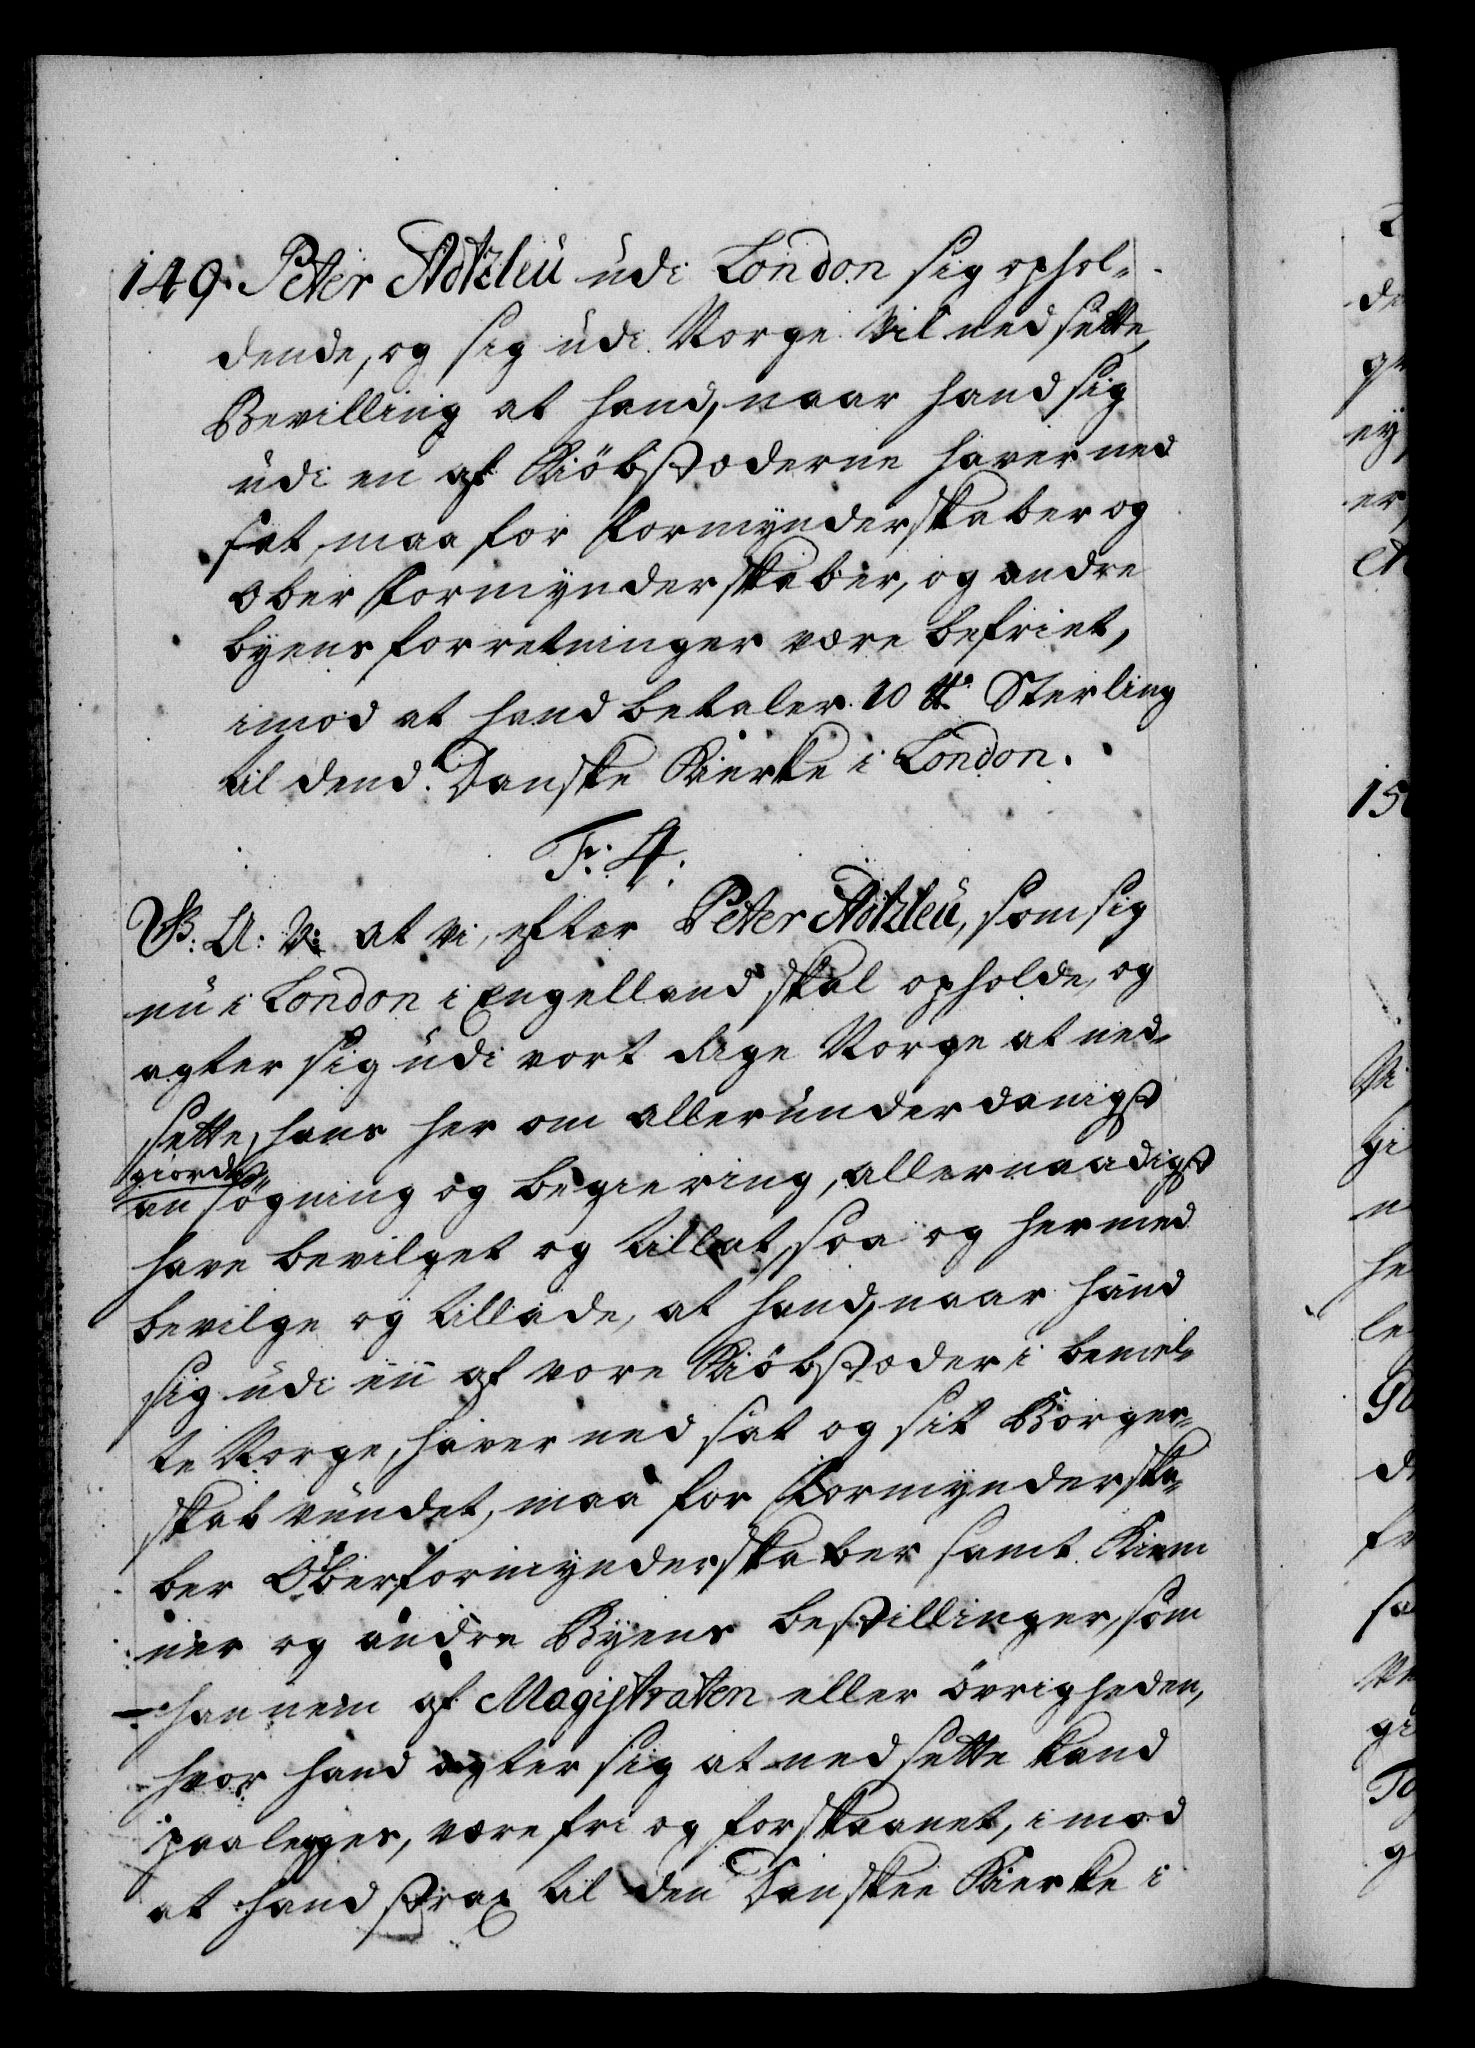 149. Peter udi London sig ophol-
dende, og sig udi Norge vil nedsette,
Bevilling at hand, naar hand sig
udi en af Kiöbstæderne haver ned
sat, maa for Formynderskaber og
Ober Formynderskaber, og andre
byens forretninger være befriet,
imod at hand betaler 10 ℔ Sterling
til dend Danske Kierke i London.
F: 4:
G: A: V: at vi, efter Peter, som sig
nu i London i Engelland skal opholde, og
agter sig udi vort Rige Norge at ned-
sette, hans her om allerunderdanigst
giorde
ansögning og begiering, allernaadigst
have bevilget og tilladt, saa og hermed
bevilge og tillade, at hand, naar hand
sig udi een af vore Kiöbstæder i bemel-
te Norge, haver nedsat og sit Borger-
skab vundet, maa for Formynderska-
ber Oberformynderskaber samt Kiem
ner og andre Byens bestillinger, som
hannem af Magistraten eller övrigheden,
hvor hand agter sig at nedsette kand
paalegges, være fri og forskaanet, imod
at hand strax til den Danske Kierke i